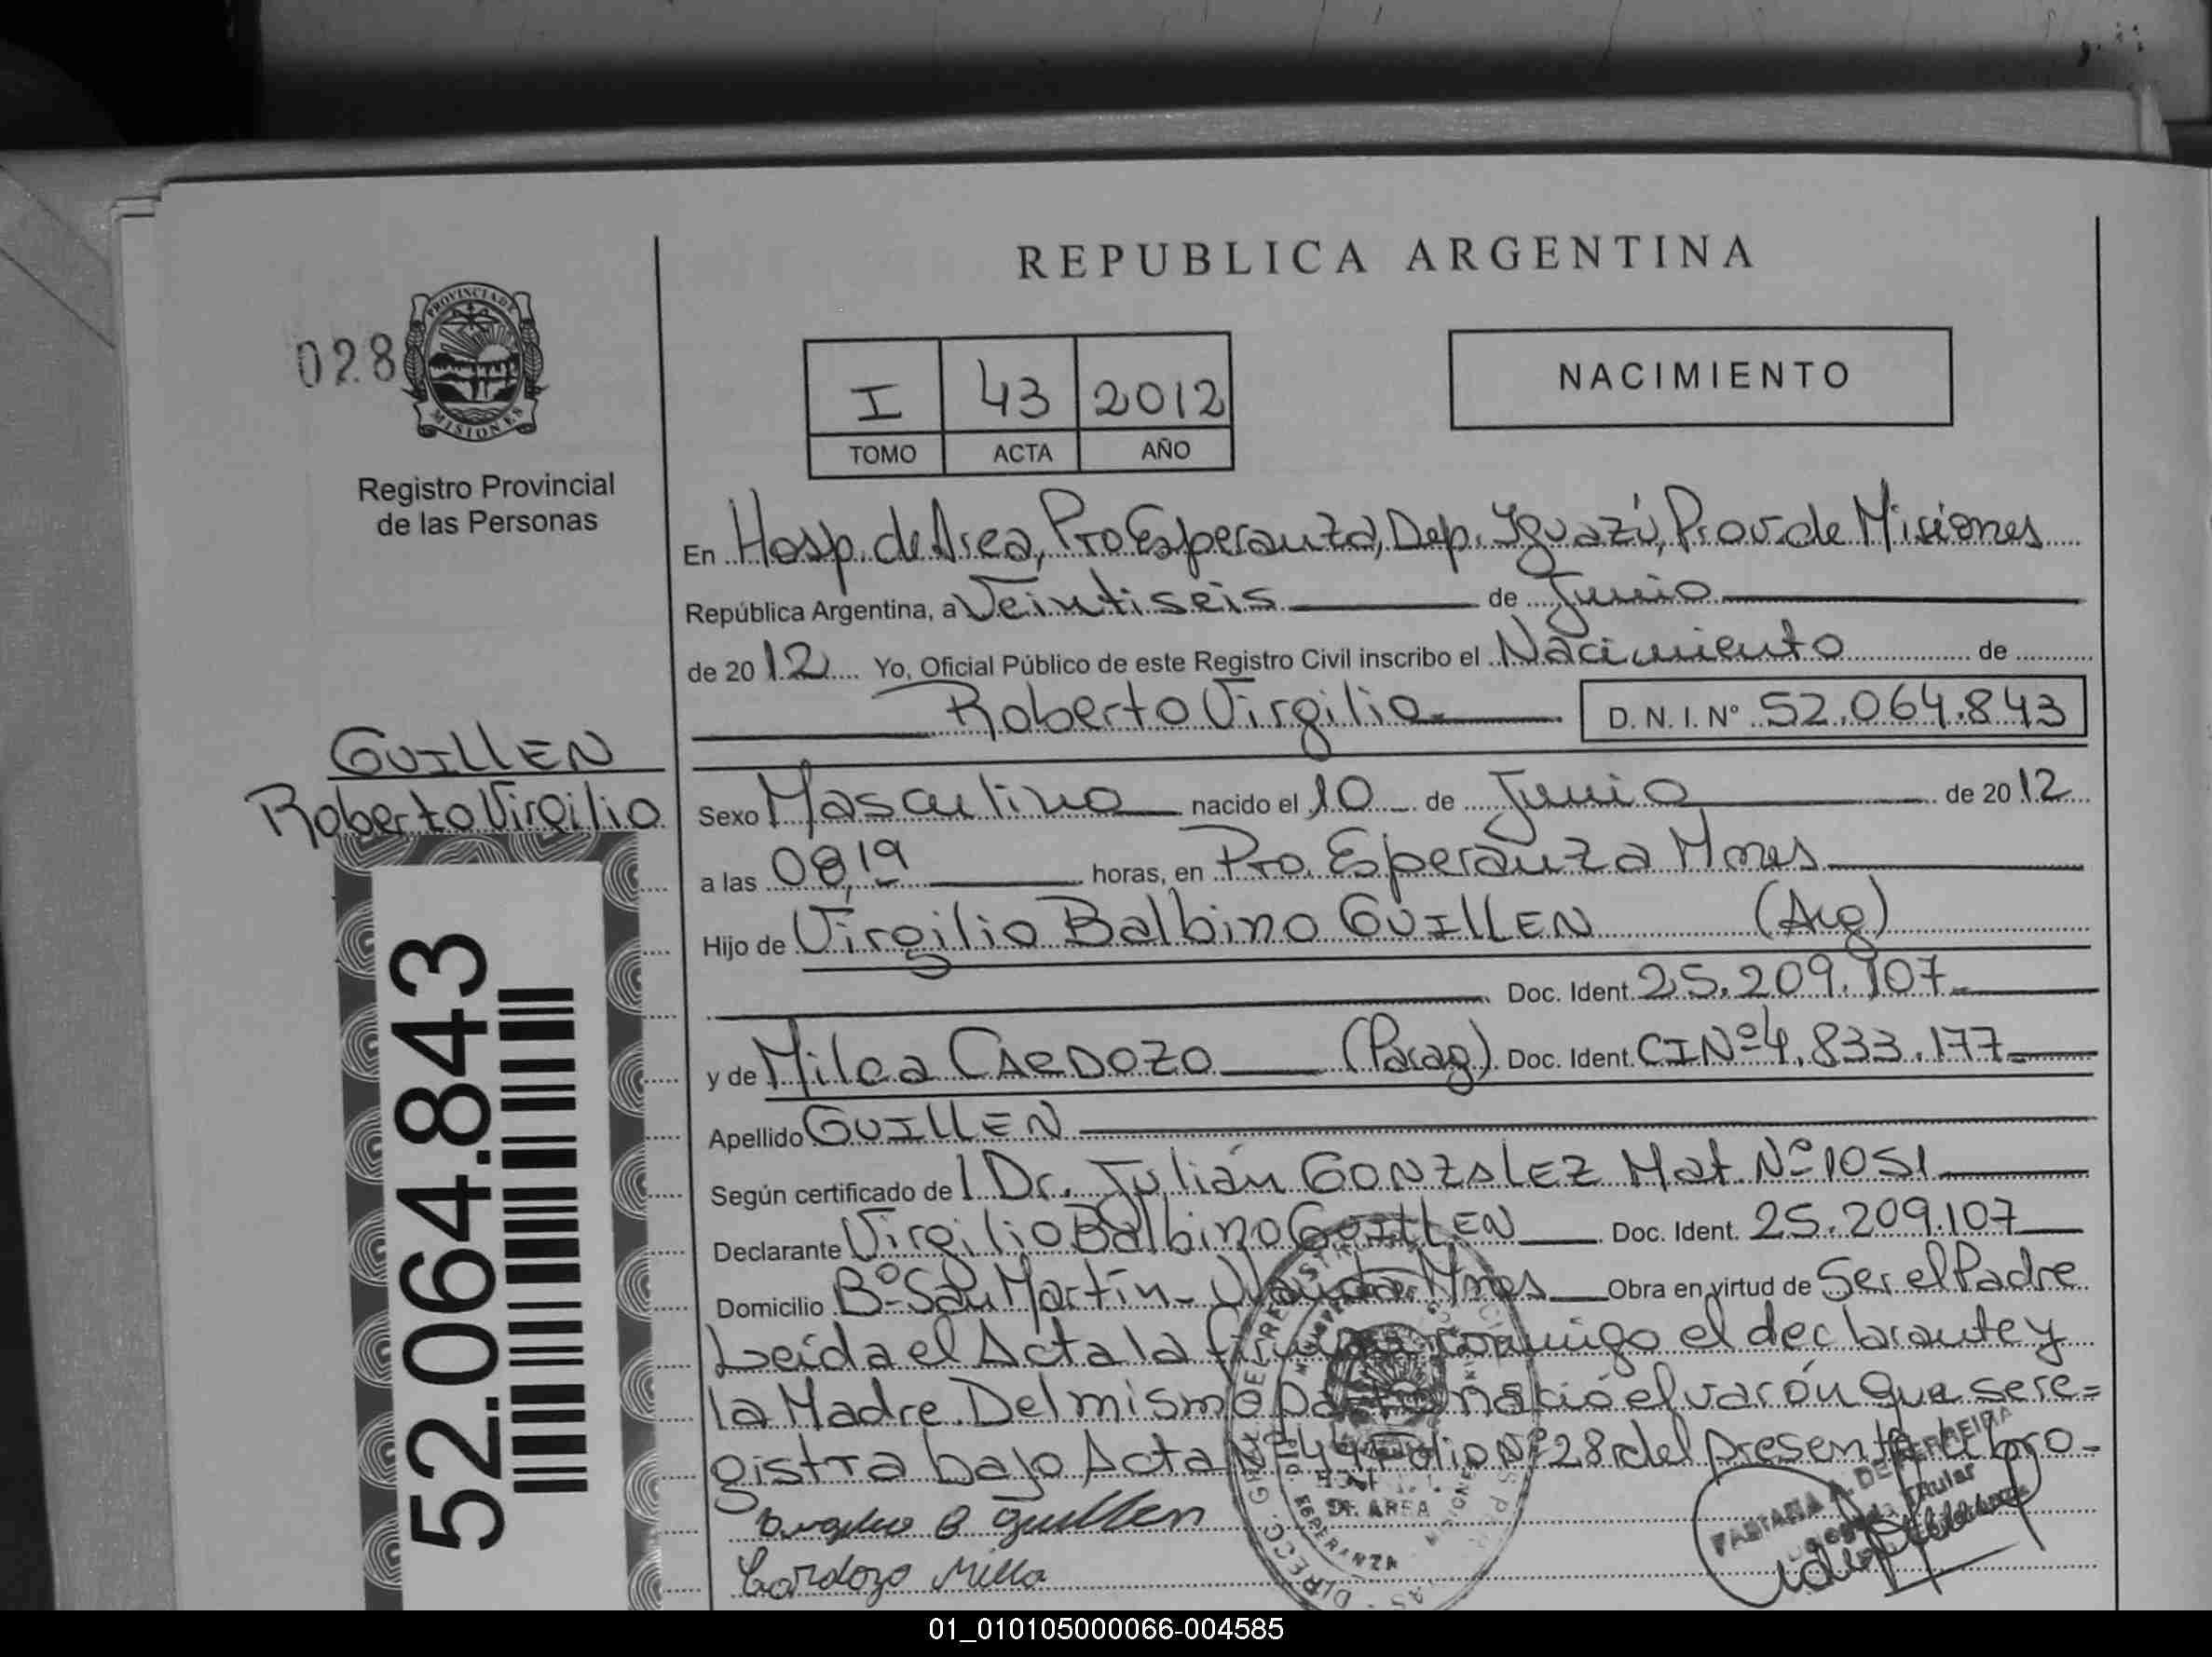 REPUBLICA ARGENTINA
028
PROVINCIA DE
MISIONES
Registro Provincial
de las Personas
I 43 2012
TOMO ACTA AÑO
NACIMIENTO
En Hosp. de Area, Pto Esperanza, Dep. Iguazú, Prov. de Misiones
República Argentina, a Veintiseis de Junio
de 2012 Yo, Oficial Público de este Registro Civil inscribo el Nacimiento de
Roberto Virgilio D. N. I. Nº 52.064.843
GUILLEN
Roberto Virgilio
Sexo Masculino nacido el 10 de Junio de 2012
a las 08,19 horas, en Pto. Esperanza Mnes
Hijo de Virgilio Balbino GUILLEN (Arg)
Doc. Ident. 25.209.107
y de Milca CARDOZO (Parag) Doc. Ident. CI Nº 4.833.177
Apellido GUILLEN
Según certificado de l Dr. Julián GONZALEZ Mat. Nº 1051
Declarante Virgilio Balbino GUILLEN Doc. Ident. 25.209.107
Domicilio Bº San Martín - Wanda Mnes Obra en virtud de Ser el Padre
Leída el Acta la firman conmigo el declarante y
la Madre. Del mismo Parto nació el varón que se re=
gistra bajo Acta Nº 44 Folio Nº 28 del presente Libro.
52.064.843
B Guillen
Cardozo Milca
DE AREA
ESPERANZA
FABIANA A. DE FERREIRA
Titular
01_010105000066-004585